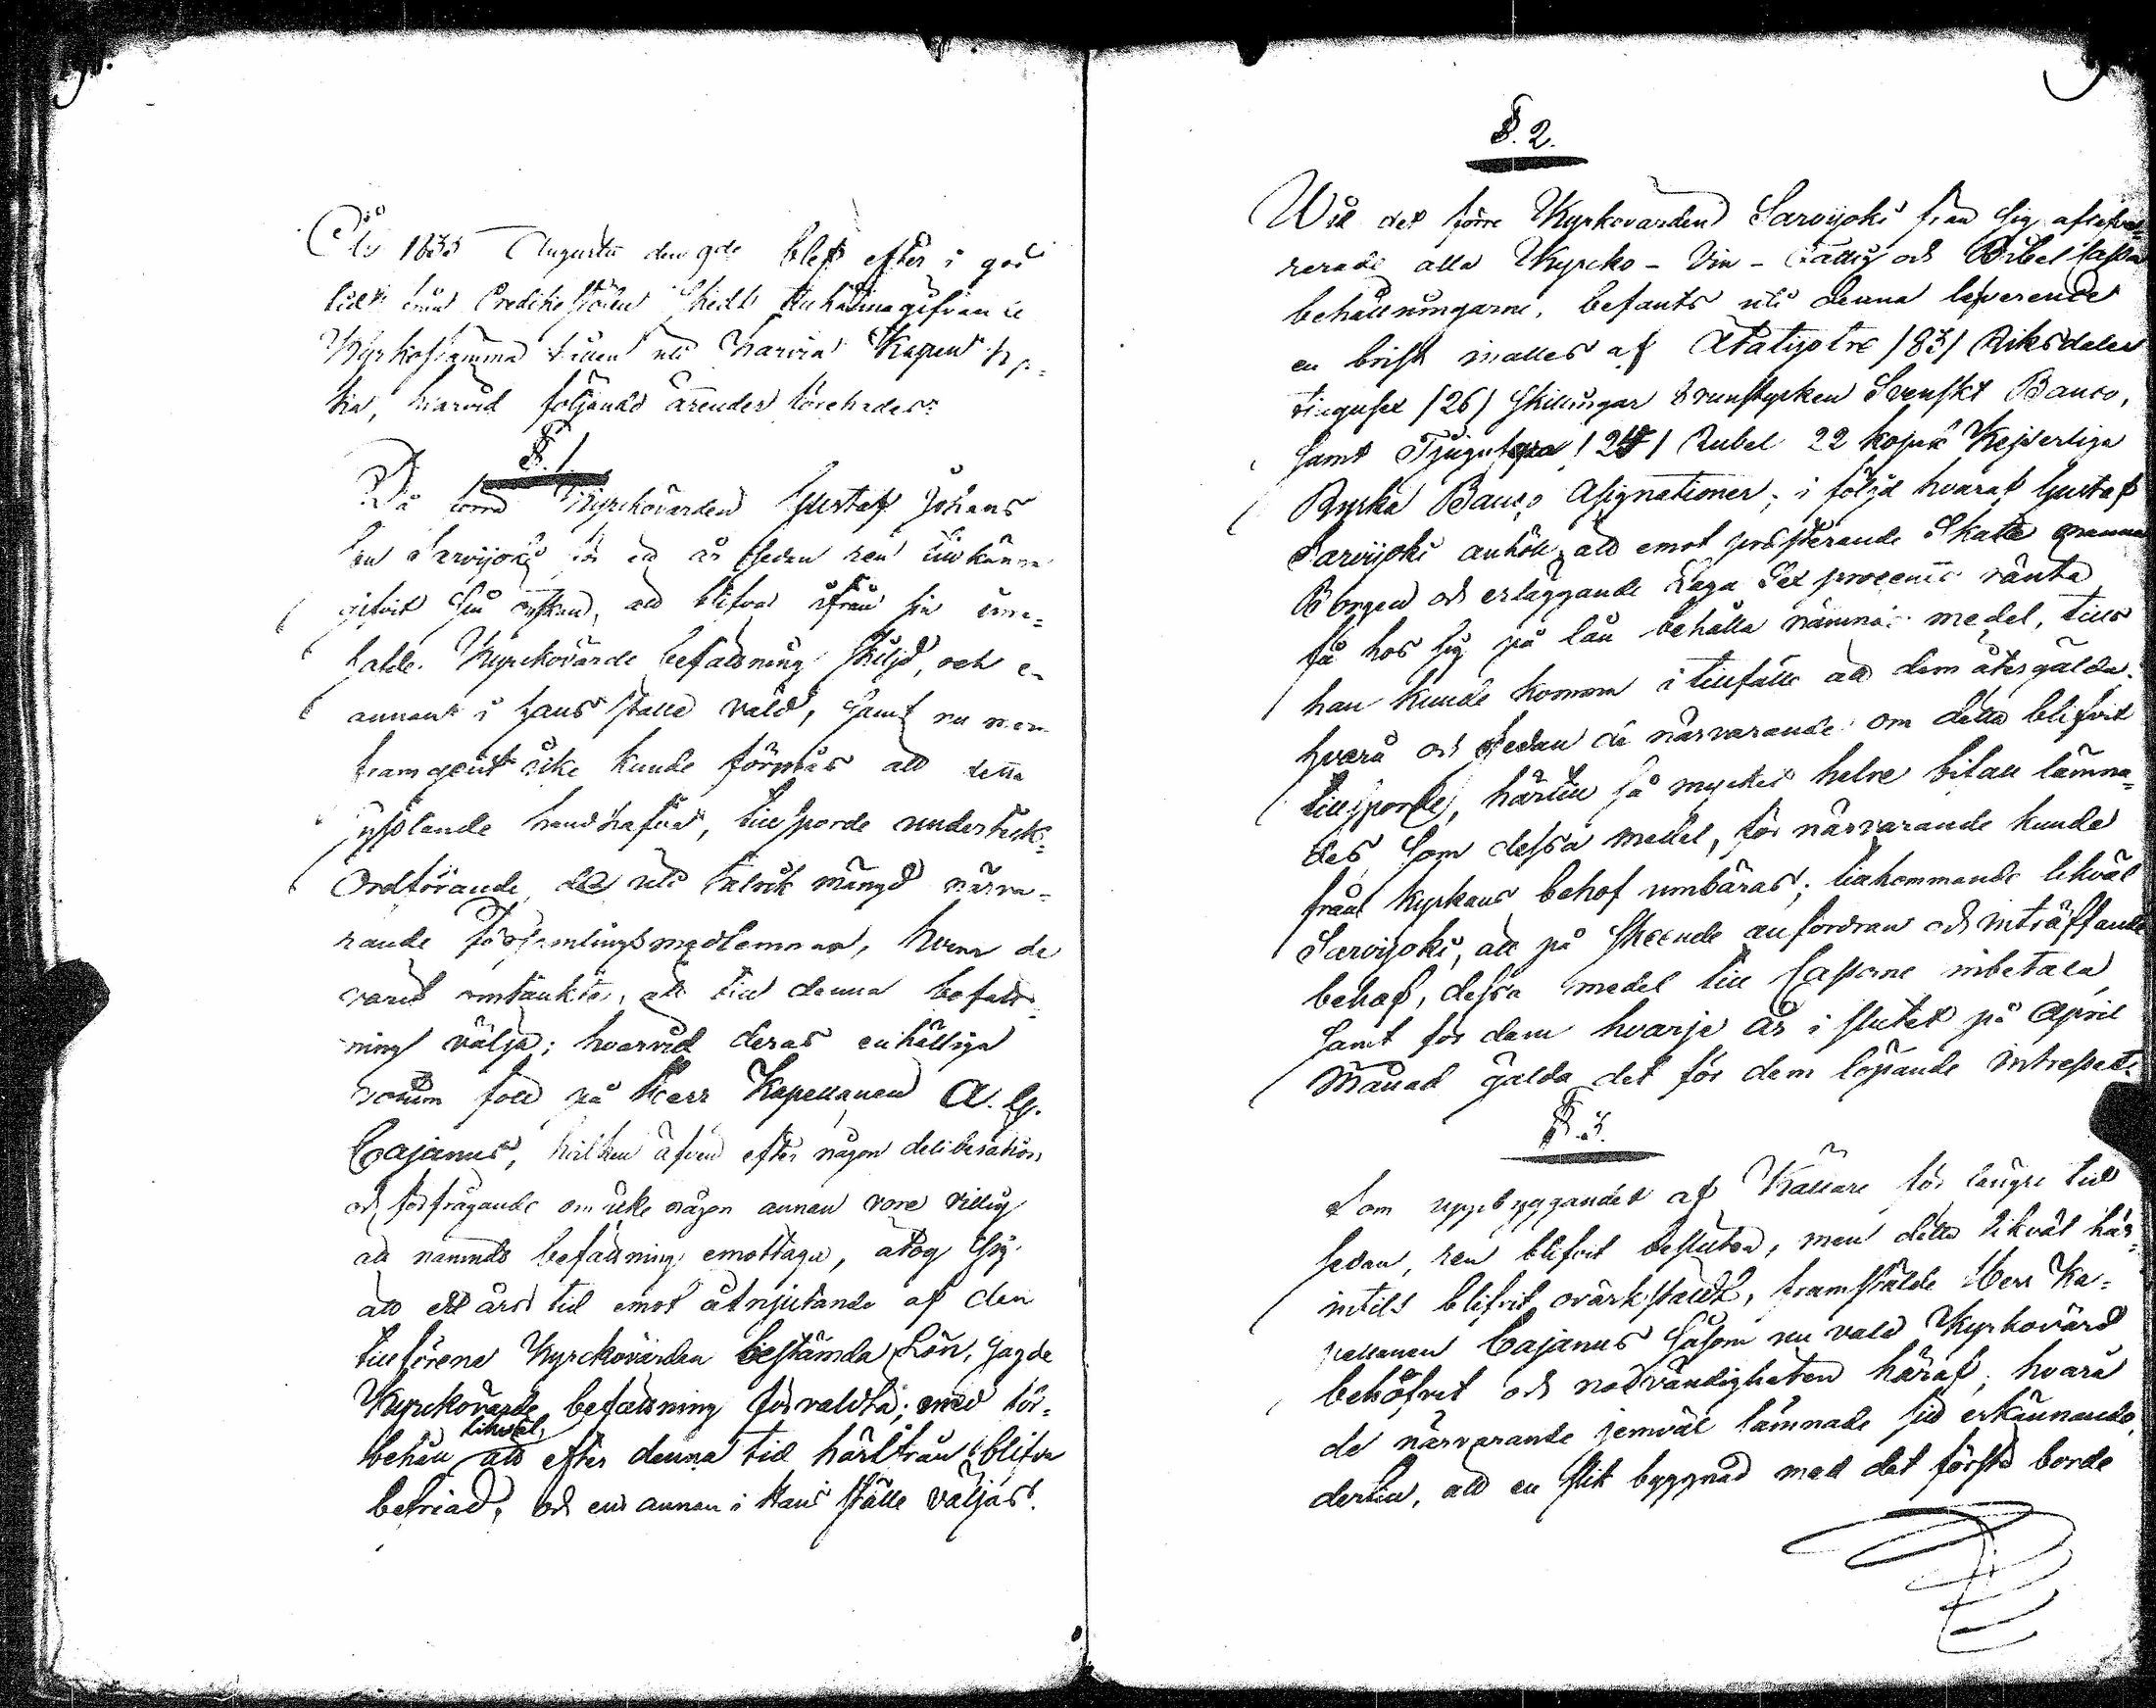 År 1835 Augusti den 9de blef efter i god
tid från Predikostolen skedt tillkännagifvande
Kyrkostämma hållen uti Karvia Kapell kyr-
kia, hvarvid följande ärender förehades:
§. 1.
Då förra Kyrckovärden Gustaf Johans
son Sarvijoki för ett år sedan ren tillkänna
gifvit sin önskan, att blifva ifrån sin inne-
hafde Kyrckovärde befattning skiljd, och en
annan i hans ställe vald, samt nu mera
framgent icke kunde förmås att detta
handhafva, till sporde underteckn.
Ordförande, de uti talrik mängd närva-
rande församlingsmedlemmar, hvem de
vore omtänkte, att till denna befatt-
ning välja; hvarvid deras enhälliga
votum föll på Herr Kapellanen A. G.
Cajanus, hvilken äfven efter någon deliberation
och förfrågande om icke någon annan vore villig
att nämnde befattning emottaga, åtog sig
att ett års tid emot åtnjutande af den
tillförene Kyrckovärden bestämda Lön, sagde
Kyrckovärde befattning förvalta; med för-
behåll likväl, att efter denna tid härifrån blifva
befriad, och en annan i Hans ställe väljas.
§. 2.
Wid det förre Kyrkovärden Sarvijoki från sig aflefve-
rerade alla Kyrcko- Vin- Fattig och Bibel Cassa
behållningarne, befants uti denna leverende
en brist inalles af Åtatijotre /83/ Riksdaler
tjugusex /26/ skillingar 8 runstycken Svenskt Banco,
samt Tjugu /24/ Rubel 22 kopek Kejserliga
Ryska Banco Assignationer; i följd hvaraf Gustaf
Sarvijoki anhöll, att emot presterande Skatte manna
Borgen och erläggande Laga Sex procents ränta
få hos sig på lån behålla nämnde medel, tills
han kunde komma i tillfälle att dem återgälda.
hvarå och sedan de närvarande om detta blifvit
tillsporde, härtill så mycket helre bifall lämna-
des, som dessa medel, för närvarande kunde
från Kyrkans behof umbäras; tillkommande likväl
Sarvijoki, att på skeende anfordran och inträffande
behof, dessa medel till Cassorne inbetala,
samt för dem hvarje År i slutet på April
Månad gälda det för dem löpande intresset.
§. 3.
Som uppbyggandet af Källare för längre tid
sedan, ren blifvit beslutan, men detta likväl här-
intils blifvit overkställt, framstälde Herr Ka-
pellanen Cajanus såsom nu vald Kyrkovärd
behöfvet och nödvändigheten häraf, hvarå
de närvarande jemväl lämnade sitt erkännande,
dertill, att en slik byggnad med det första borde